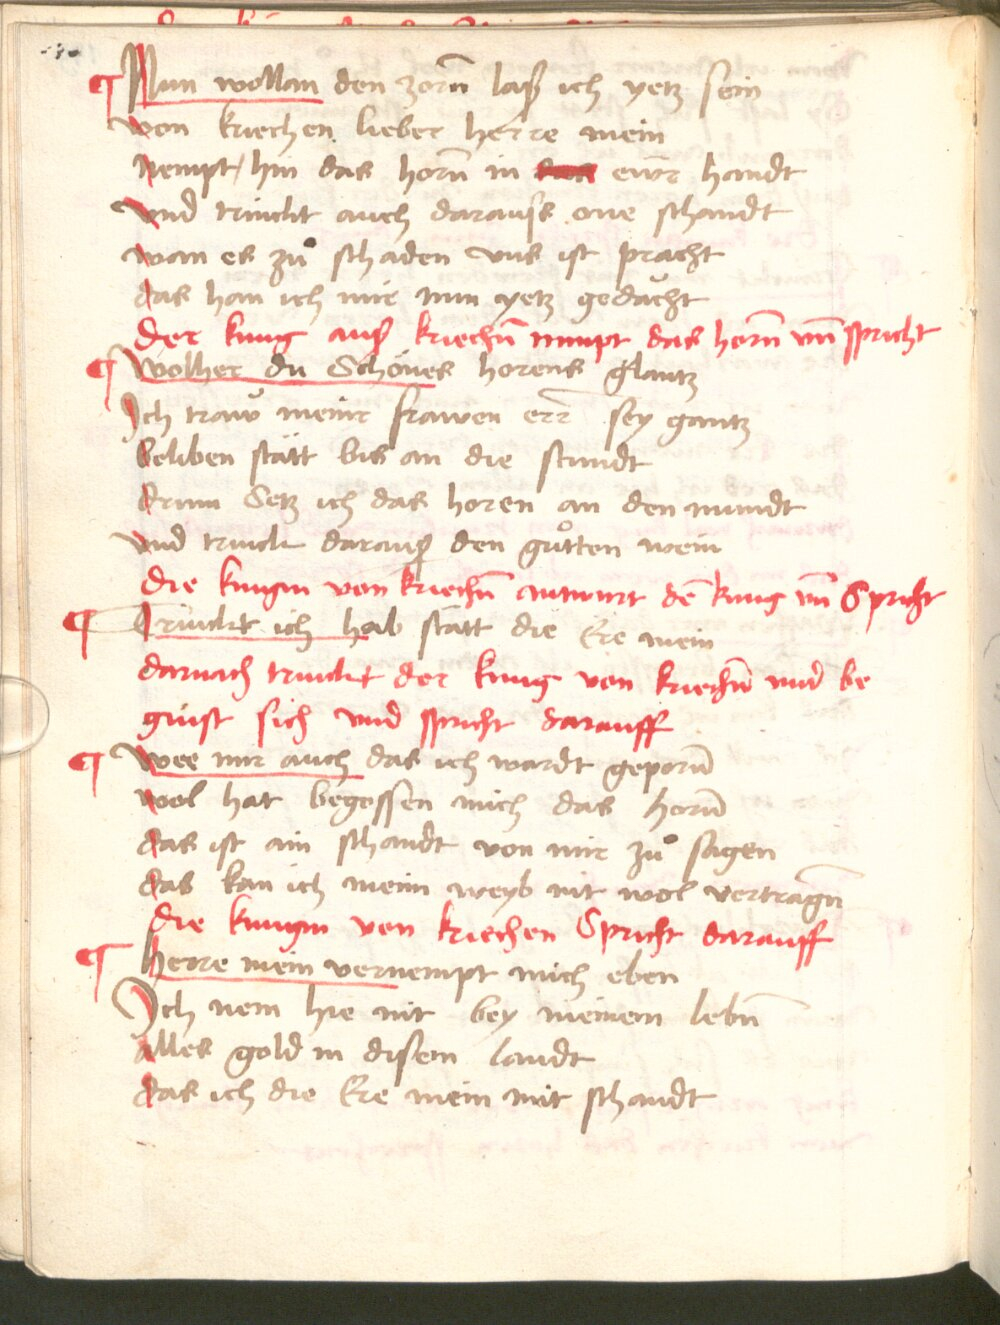 ¶ Nun wollan den zorn̄ laß ich yetz sein
von kriechen lieber herre mein
Nempt hin das horn̄ in ewr̄ handt
Vnd trinckt auch darauss one schandt
wan es zuͦ schaden vns ist pracht
das han ich mir nun yetz gedacht
der kung auß kriechn̄ nimpt das horn̄ vn̄ spricht
¶ Wolher du Schönes horens glantz
Ich traw meinr frawen err̄ sey gantz
beliben stätt bis an die stundt
drum Setz ich das horen an den mundt
Vnd trinck darauß den guͦtten wein
die kungin von kriechn̄ antwurt dē kung vn̄ Spricht
¶ Trinckt ich hab stätt die Ere mein
darnach trinckt der kung von kriechn̄ vnd be
giust sich vnd spricht darauff
¶ Wee mir auch das ich wardt geporn̄
wol hat begossen mich das horn̄
das ist ain schandt von mir zuͦ sagen
das kan ich meim weyb nit wol vertragn̄
die kungin von kriechen Spricht darauff
¶ Herre mein vernempt mich eben
Ich nem hie nit bey meinem lebn̄
Alles gold in disem landt
das ich die Ere mein mit schandt